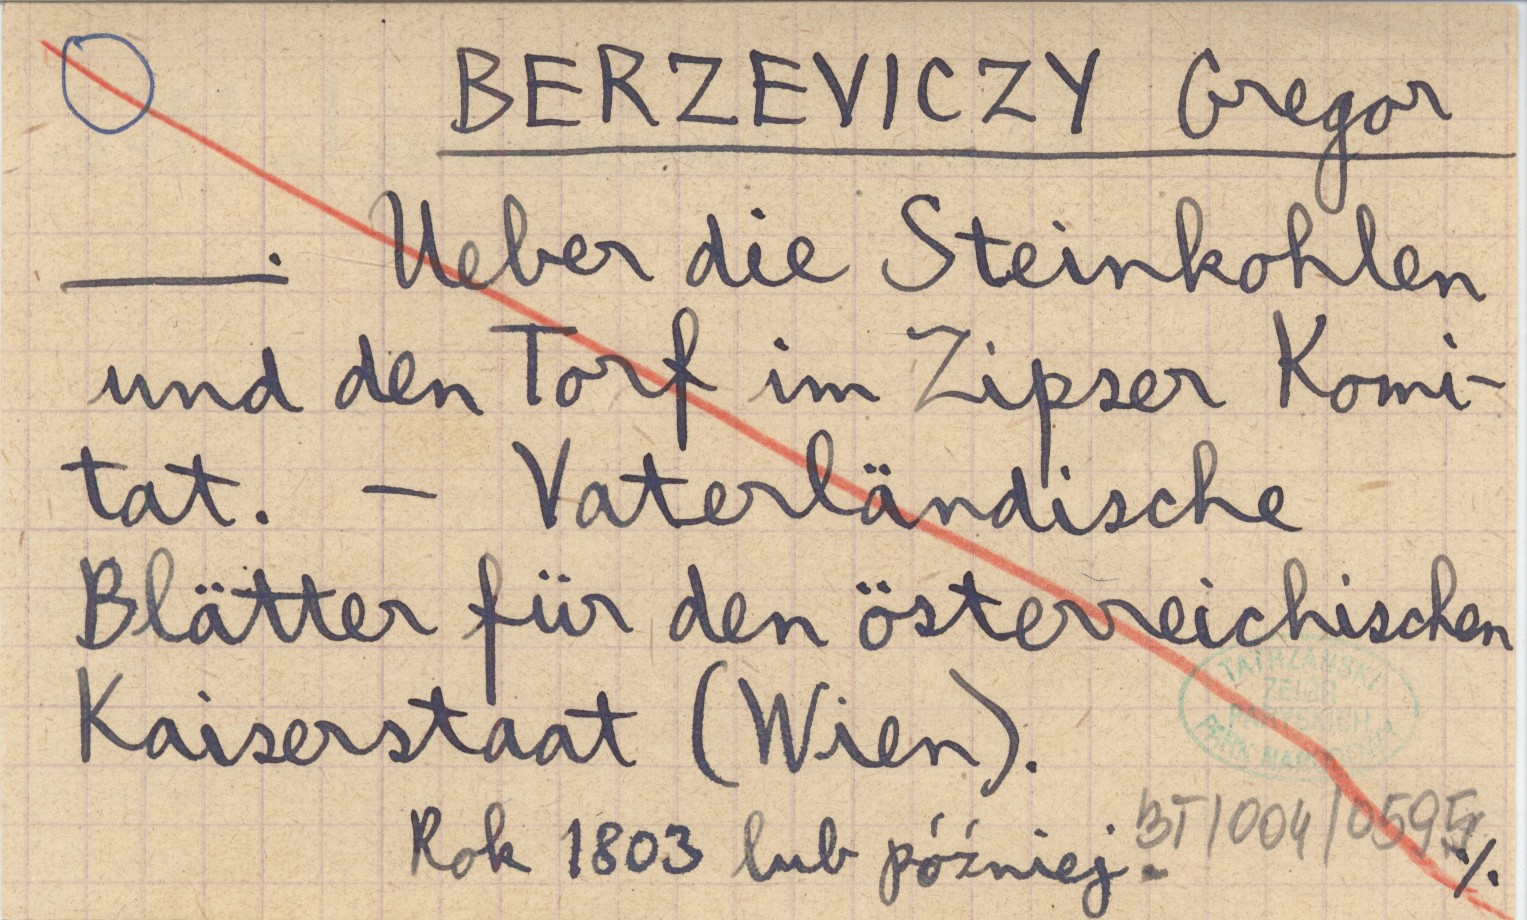 BERZEVICZY Gregor
———. Ueber die Steinkohlen
und den Torf im Zipser Komi-
tat. — Vaterländische
Blätter für den österreichischen
Kaiserstaat (Wien).
TATRZAŃSKI
PARYSKICH
PARK NARODOWY
Rok 1803 lub później.
BT/004/0595
./.